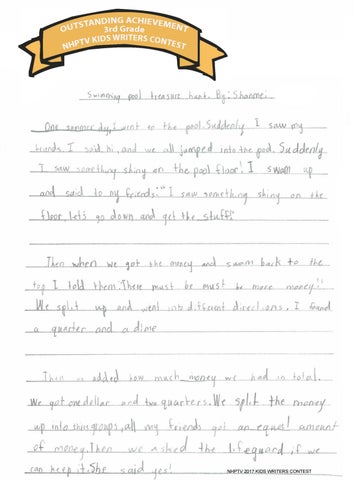 OUTSTANDING ACHIEVEMENT
3rd Grade
NHPTV KIDS WRITERS CONTEST
Swimming pool treasure hunt. By: Shanmei
One summer dy, I went on the pool. Suddenly I saw my
friends. I said hi, and we all jumped into the pool. Suddenly
I saw something shiny on the pool floor! I swam up
and said to my friends: "I saw something shiny on the
floor, let's go down and get the stuff!"
Then when we got the money and swam back to the
top I told them. There must be must be more money!!
We split up and went into different directions. I found
a quarter and a dime
Then we added how much money we had in total.
We got one dollar and two quarters. We split the money
up into groups, all my friends got an equel amount
of money. Then we asked the lifeguard, if we
can keep it. She said yes!
NHPTV 2017 KIDS WRITERS CONTEST